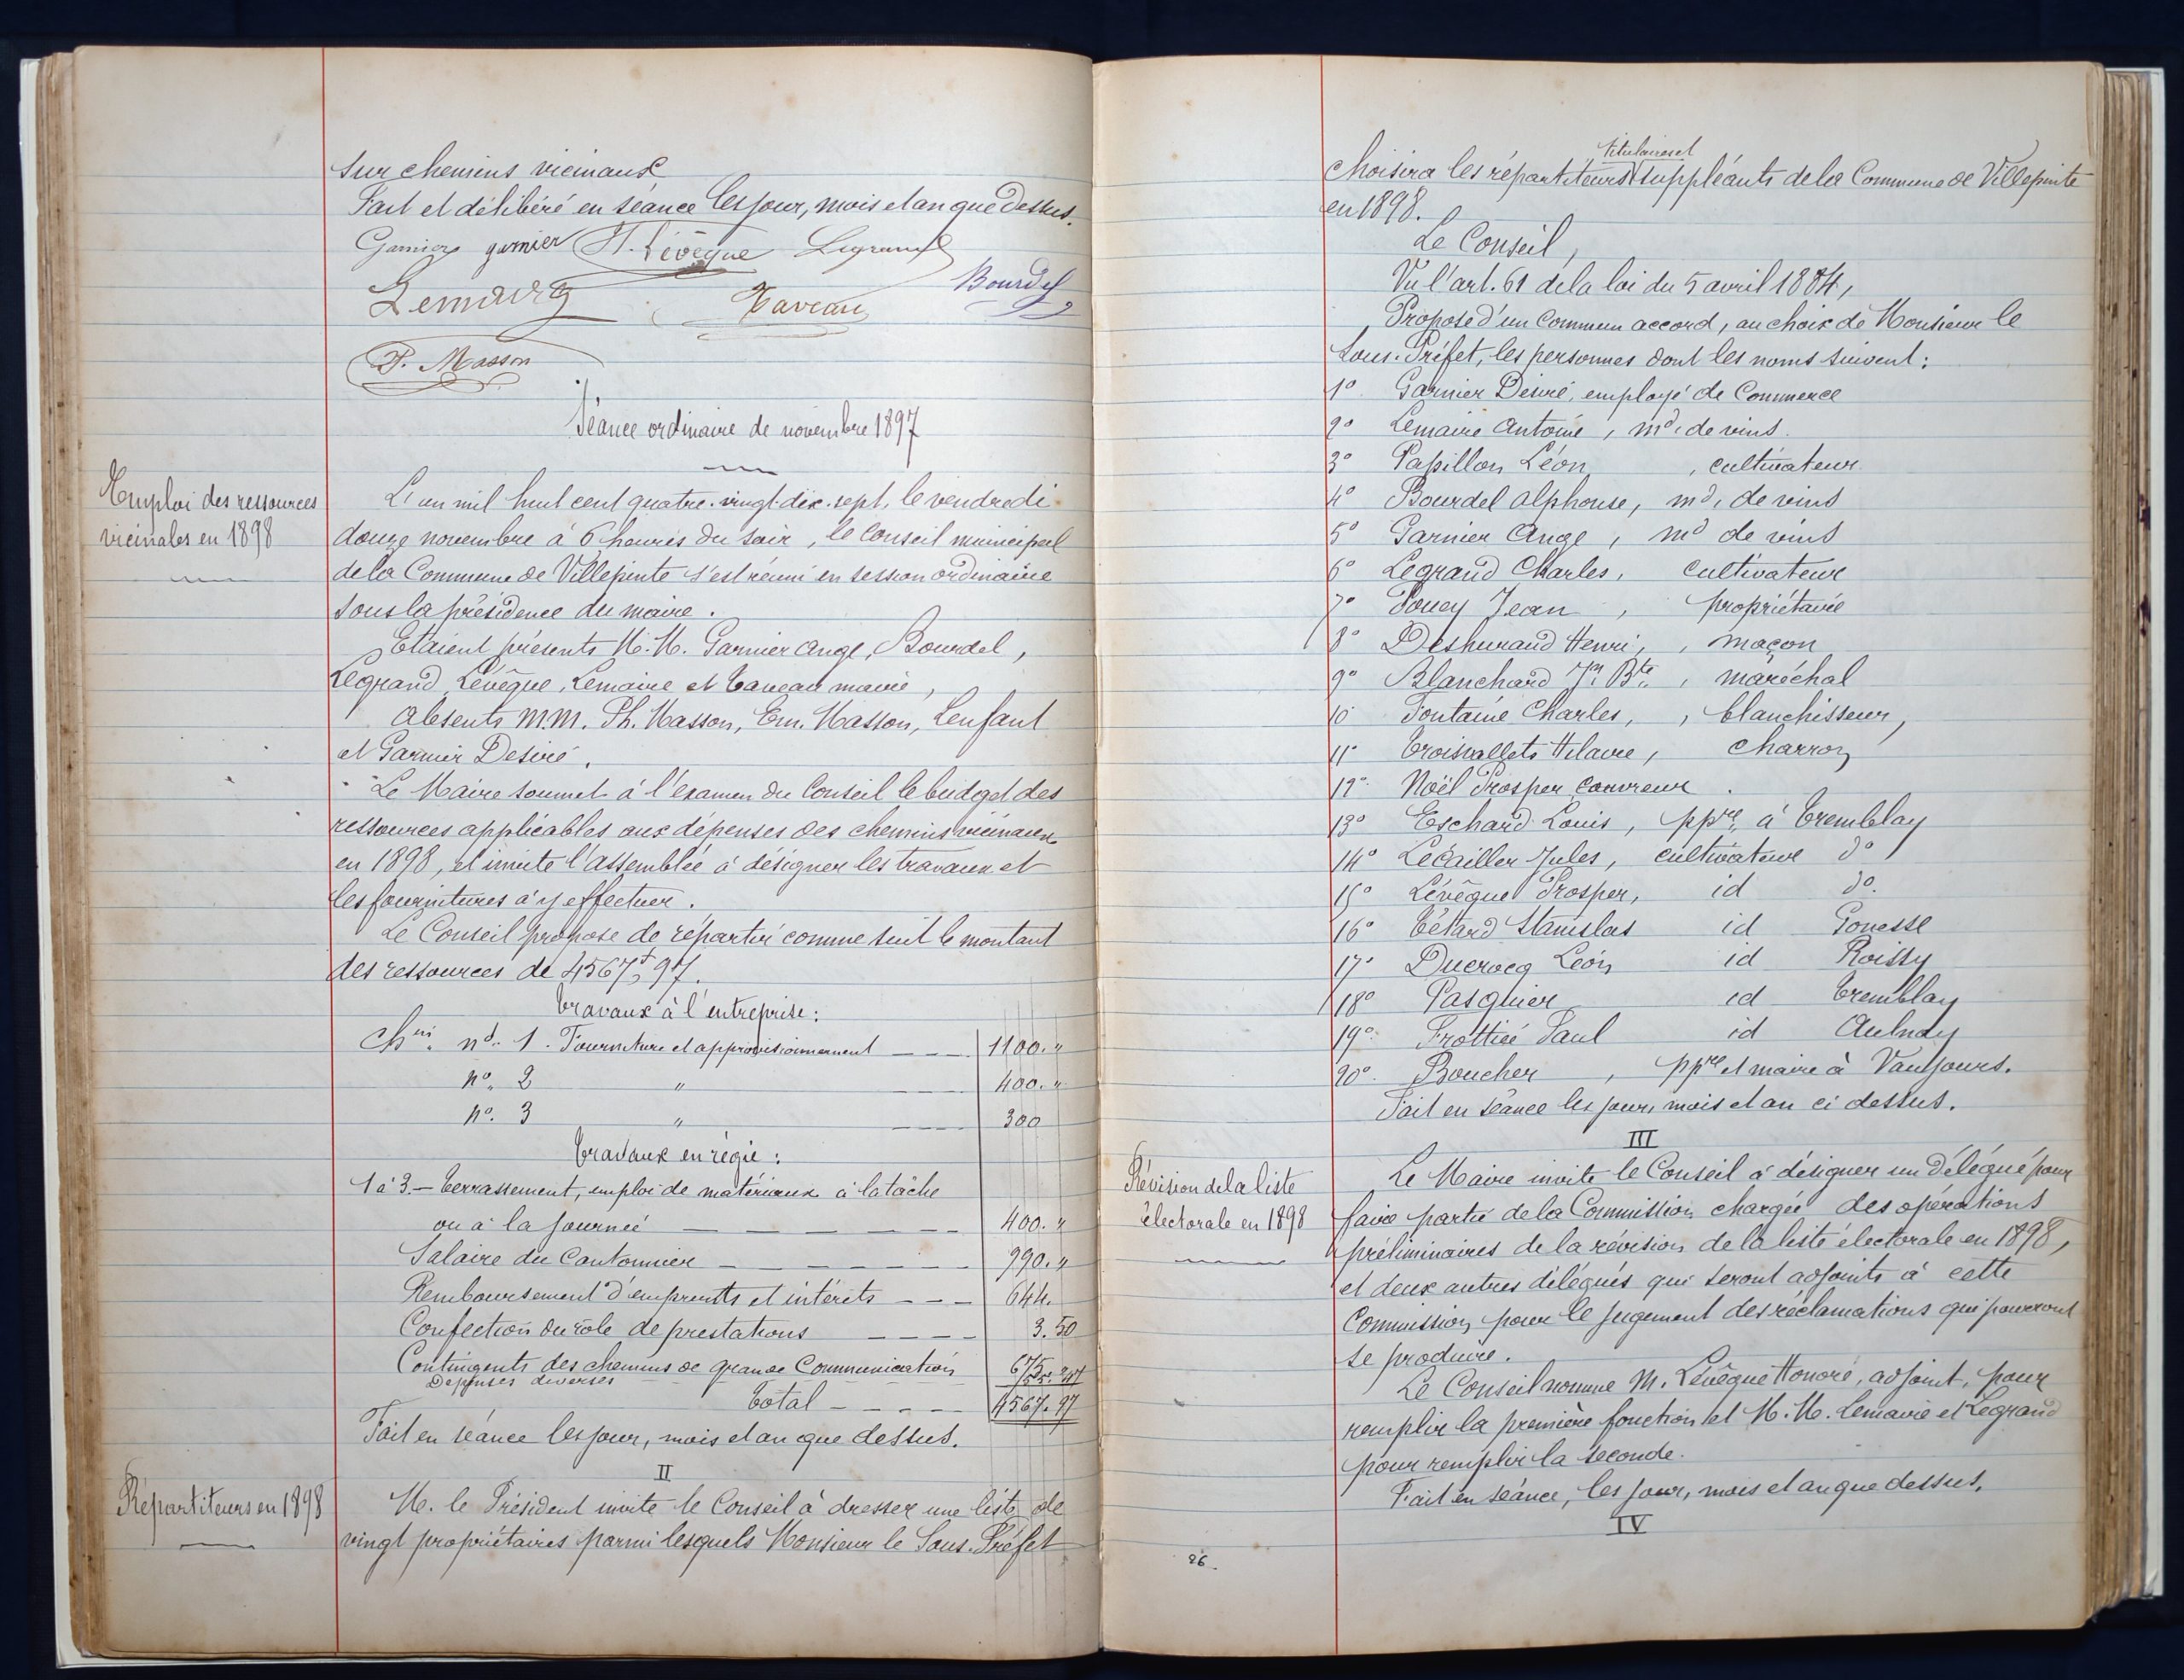 sur chemins vicinaux
Fait et délibéré en séance les jour, mois et an que dessus.
Garnier garnier H. Lévêque Legrand
Lemaire Taveau Bourdel
P. Masson
Séance ordinaire de novembre 1897
Emploi des ressources
vicinales en 1898
L'an mil huit cent quatre-vingt-dix-sept, le vendredi
douze novembre à 6 heures du soir, le Conseil municipal
de la Commune de Villepinte s'est réuni en session ordinaire
sous la présidence du maire.
Etaient présents M.M. Garnier Ange, Bourdel,
Legrand, Lévêque, Lemaire et Taveau maire,
Absents M.M. Ph. Masson, Em. Masson, Lenfant
et Garnier Desiré.
Le Maire soumet à l'examen du Conseil le budget des
ressources applicables aux dépenses des chemins vicinaux
en 1898, et invite l'assemblée à désigner les travaux et
les fournitures à y effectuer.
Le Conseil propose de répartir comme suit le montant
des ressources de 4567f,97.
Travaux à l'entreprise:
Chin. no. 1. Fourniture et approvisionnement 1100. "
no. 2 " 400. "
no. 3 " 300
Travaux en régie:
1 à 3. — Terrassement, emploi de matériaux à la tâche
ou à la journée 400. "
Salaire du Cantonnier 990. "
Remboursement d'emprunts et intérêts 644.
Confection du rôle de prestations 3.50
Contingents des chemins de grande Communication 675
Dépenses diverses
Total 4567.97
Fait en séance les jour, mois et an que dessus.
II
Répartiteurs en 1898
M. le Président invite le Conseil à dresser une liste de
vingt propriétaires parmi lesquels Monsieur le Sous-Préfet
choisira les répartiteurs titulaires et suppléants de la Commune de Villepinte
en 1898.
Le Conseil,
Vu l'art. 61 de la loi du 5 avril 1884,
Propose d'un commun accord, au choix de Monsieur le
Sous-Préfet, les personnes dont les noms suivent:
1° Garnier Désiré, employé de Commerce
2° Lemaire Antoine, md. de vins.
3° Papillon Léon, cultivateur
4° Bourdel Alphonse, md. de vins
5° Garnier Ange, md de vins
6° Legrand Charles, cultivateur
7° Pouey Jean, propriétaire
8° Deshurand Henri, maçon
9° Blanchard Jn. Bte., maréchal
10° Fontaine Charles, , blanchisseur,
11° Troisvallets Hilaire, charron
12° Noël Prosper, couvreur.
13° Eschard Louis, ppre, à Tremblay
14° Lecailler Jules, cultivateur do
15° Lévêque Prosper, id do.
16° Tétard Stanislas id Gonesse
17° Ducrocq Léon id Roissy
18° Pasquier id Tremblay
19° Frottié Paul id Aulnay
20° Boucher, ppre et maire à Vaujours.
Fait en séance les jour, mois et an ci dessus.
III
Révision de la liste
électorale en 1898
Le Maire invite le Conseil à désigner un Délégué pour
faire partie de la Commission chargée des opérations
préliminaires de la révision de la liste électorale en 1898,
et deux autres délégués qui seront adjoints à cette
Commission, pour le jugement des réclamations qui pourront
se produire.
Le Conseil nomme M. Lévêque Honoré, adjoint, pour
remplir la première fonction et M.M. Lemaire et Legrand
pour remplir la seconde.
Fait en séance, les jour, mois et an que dessus.
IV
26